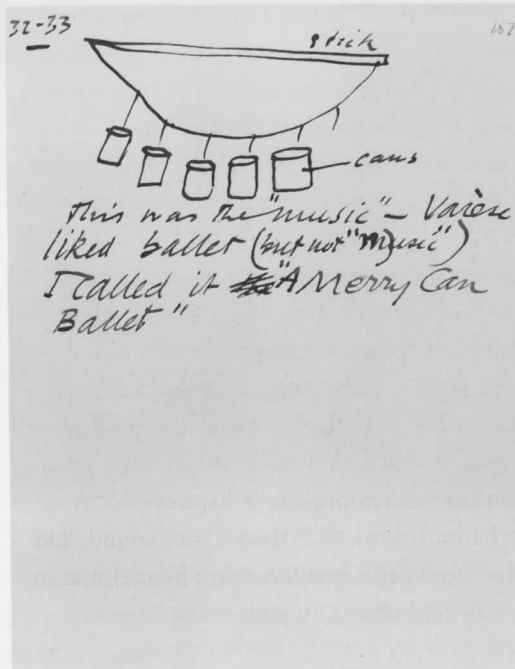 32-33
107
stick
cans
This was the "music" – Varèse
liked ballet (but not "Music")
I called it "A Merry Can
Ballet"